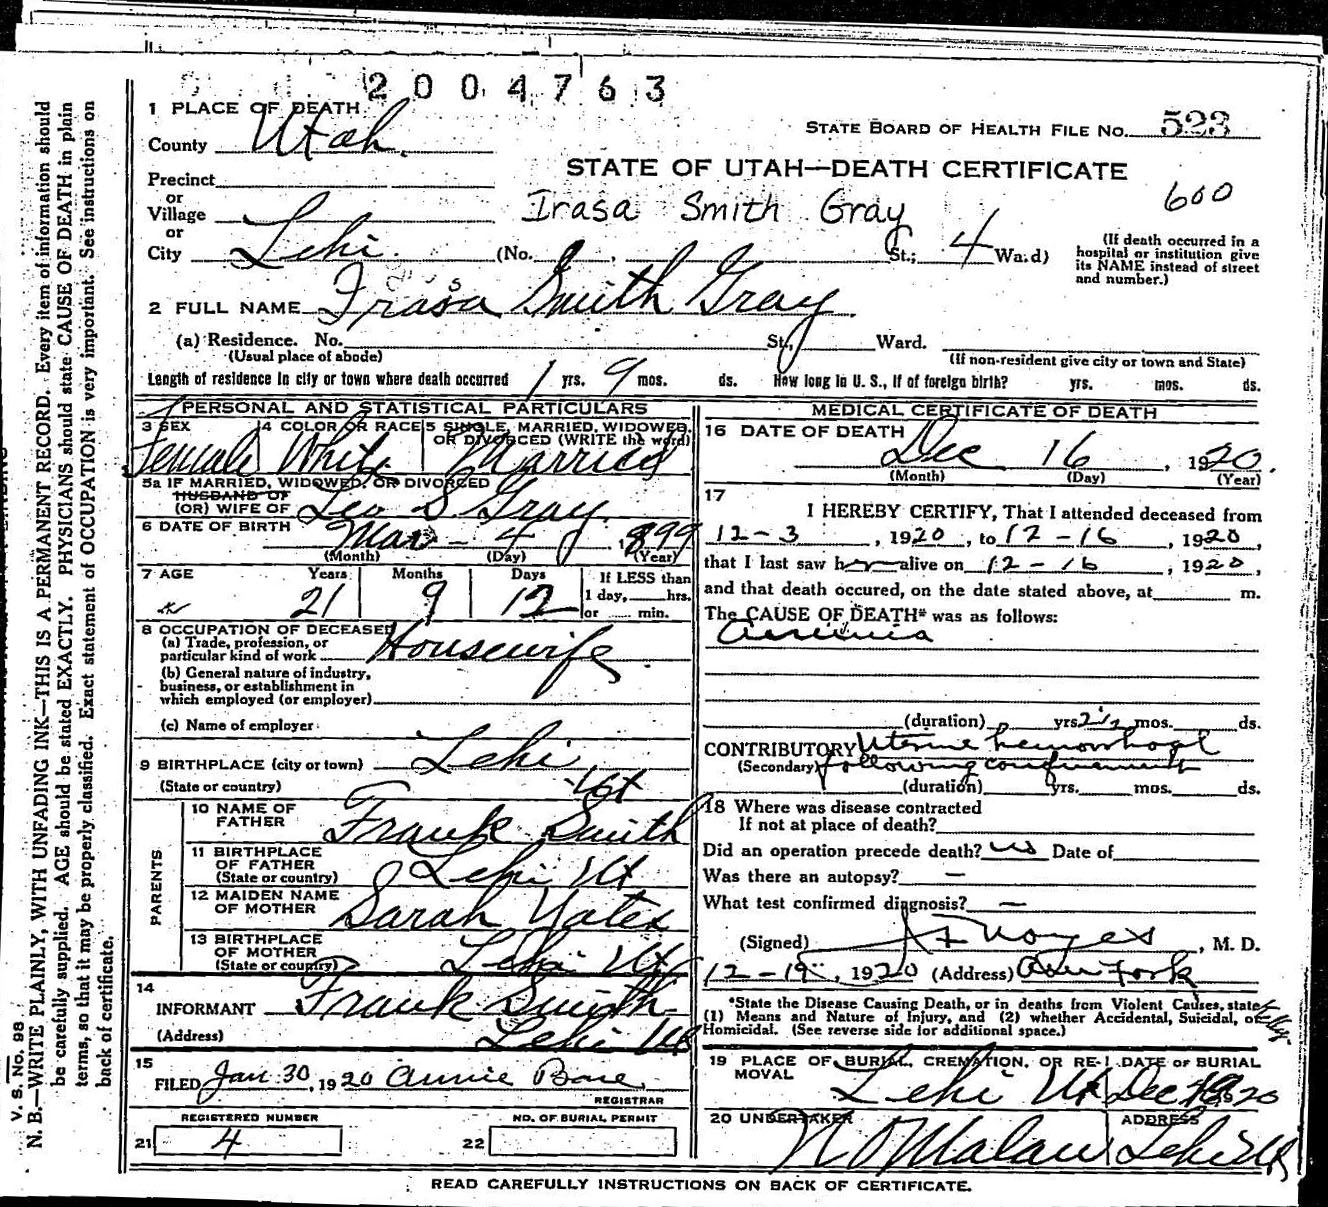 2004763
1 PLACE OF DEATH
County Utah.
STATE BOARD OF HEALTH FILE No. 523
STATE OF UTAH—DEATH CERTIFICATE
Precinct
or
Village
Irasa Smith Gray
600
or
City Lehi. (No. , St.; 4 Ward)
(If death occurred in a
hospital or institution give
its NAME instead of street
and number.)
2 FULL NAME Irasa Smith Gray.
(a) Residence. No. St., Ward.
(Usual place of abode) (If non-resident give city or town and State)
Length of residence in city or town where death occurred 1 yrs. 9 mos. ds. How long in U. S., if of foreign birth? yrs. mos. ds.
PERSONAL AND STATISTICAL PARTICULARS
3 SEX 4 COLOR OR RACE 5 SINGLE, MARRIED, WIDOWED,
OR DIVORCED (WRITE the word)
Female White Married
5a IF MARRIED, WIDOWED, OR DIVORCED
HUSBAND OF
(OR) WIFE OF Leo S. Gray
6 DATE OF BIRTH Mar - 4, 1899
(Month) (Day) (Year)
7 AGE Years Months Days If LESS than
21 9 12 1 day, hrs.
or min.
8 OCCUPATION OF DECEASED
(a) Trade, profession, or
particular kind of work Housewife
(b) General nature of industry,
business, or establishment in
which employed (or employer)
(c) Name of employer
9 BIRTHPLACE (city or town) Lehi
(State or country) Ut
PARENTS
10 NAME OF
FATHER Frank Smith
11 BIRTHPLACE
OF FATHER Lehi Ut
(State or country)
12 MAIDEN NAME
OF MOTHER Sarah Yates
13 BIRTHPLACE
OF MOTHER Lehi Ut
(State or country)
14
INFORMANT Frank Smith
(Address) Lehi Ut
15
FILED Jan 30, 1920 Annie Bone
REGISTRAR
REGISTERED NUMBER NO. OF BURIAL PERMIT
21 4 22
MEDICAL CERTIFICATE OF DEATH
16 DATE OF DEATH Dec 16, 1920.
(Month) (Day) (Year)
17
I HEREBY CERTIFY, That I attended deceased from
12-3, 1920, to 12-16, 1920,
that I last saw her alive on 12-16, 1920,
and that death occured, on the date stated above, at m.
The CAUSE OF DEATH* was as follows:
Anemia
(duration) yrs. 2 1/2 mos. ds.
CONTRIBUTORY Uterine hemorrhage
(Secondary) following confinement
(duration) yrs. mos. ds.
18 Where was disease contracted
If not at place of death?
Did an operation precede death? no Date of
Was there an autopsy? —
What test confirmed diagnosis? —
(Signed) Noyes, M. D.
12-19, 1920 (Address) Am Fork
*State the Disease Causing Death, or in deaths from Violent Causes, state
(1) Means and Nature of Injury, and (2) whether Accidental, Suicidal, or
Homicidal. (See reverse side for additional space.)
19 PLACE OF BURIAL, CREMATION, OR RE- DATE OF BURIAL
MOVAL Lehi Ut Dec 19 1920
20 UNDERTAKER ADDRESS
Malan Lehi Ut
READ CAREFULLY INSTRUCTIONS ON BACK OF CERTIFICATE.
V. S. NO. 98
N. B.—WRITE PLAINLY, WITH UNFADING INK—THIS IS A PERMANENT RECORD. Every item of information should
be carefully supplied. AGE should be stated EXACTLY. PHYSICIANS should state CAUSE OF DEATH in plain
terms, so that it may be properly classified. Exact statement of OCCUPATION is very important. See instructions on
back of certificate.